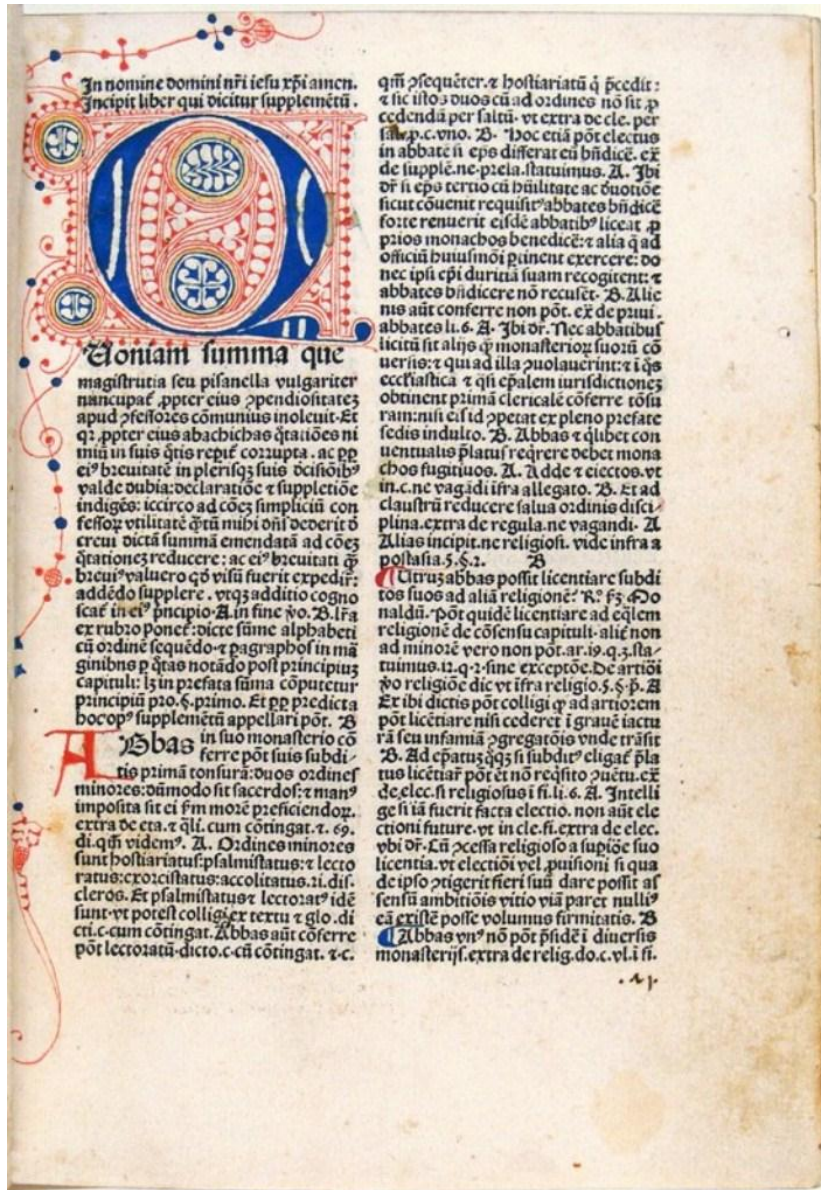 In nomine domini nr̄i iesu xp̄i amen.
Incipit liber qui dicitur supplemētū.
Q
Uoniam summa que
magistrutia seu pisanella vulgariter
nuncupat̄ ꝓpter eius ꝯpendiositatez
apud ꝯfessores cōmunius inoleuit. Et
qꝛ ꝓpter eius abachichas q̄tatiões ni
miū in suis q̄tis reperit̄ corrupta. ac ꝓp
eiꝰ breuitatē in plerisqꝫ suis decisiōibꝰ
valde dubia: declaratiōe ⁊ suppletiōe
indigēs: iccirco ad cōez simpliciū con
fessoꝝ vtilitatē q̄tū mihi dn̄s dederit d
creui dictā summā emendatā ad cōez
q̄tationez reducere: ac eiꝰ breuitati ꝙ
breuiꝰ valuero qd̄ visū fuerit expedir̄:
addēdo supplere. vtqꝫ additio cogno
scat̄ in eiꝰ pͥncipio. A. in fine ꝟo. B. lr̄a
ex rubro ponet̄: dicte sūme alphabeti
cū ordinē sequēdo. ⁊ ꝑagraphos in mar
ginibus ꝑ q̄tas notādo post principiuz
capituli: lꝫ in prefata sūma cōputetur
principiū pro. §. primo. Et ꝓp predicta
hoc opꝰ supplemētū appellari pōt. B
ABbas in suo monasterio cō
ferre pōt suis subdi-
tis primā tonsurā: duos ordines
minores: dūmodo sit sacerdos: ⁊ manꝰ
imposita sit ei f̄m morē preficiendoꝝ.
extra de eta. ⁊ q̄li. cum cōtingat. ⁊. 69.
di. qm̄ videmꝰ. A. Ordines minores
sunt hostiariatus: psalmistatus: ⁊ lecto
ratus: exorcistatus: accolitatus. 21. dis.
cleros. Et psalmistatus ⁊ lectoratꝰ idē
sunt. vt potest colligi ex textu ⁊ glo. di
cti. c. cum cōtingat. Abbas aūt cōferre
pōt lectoratū. dicto. c. cū cōtingat. ⁊. c.
qm̄ ꝯsequēter. ⁊ hostiariatū q̄ p̄cedit:
⁊ sic istos duos cū ad ordines nō sit ꝓ
cedendū per saltū. vt extra de cle. per
sal. p. c. vno. B. Hoc etiā pōt electus
in abbatē si ep̄s differat eū bn̄dicē. ex̄
de supplē. ne. prela. statuimus. A. Ibi
dr̄ si ep̄s tertio cū hūilitate ac d̄uotiōe
sicut cōuenit requisitꝰ abbates bn̄dicē
forte renuerit eisdē abbatibꝰ liceat ꝓ
prios monachos benedicē: ⁊ alia q̄ ad
officiū huiusmōi ꝑtinent exercere: do
nec ipsi ep̄i duritiā suam recogitent: ⁊
abbates bn̄dicere nō recusēt. B. Alie
nis aūt conferre non pōt. ex̄ de priui.
abbates li. 6. A. Ibi dr̄. Nec abbatibus
licitū sit alijs ꝙ monasterioꝝ suorū cō
uersis: ⁊ qui ad illa ꝯuolauerint: ⁊ i q̄s
eccłiastica ⁊ q̄si ep̄alem iurisdictionez
obtinent primā clericalē cōferre tōsu
ram: nisi eis id ꝯpetat ex pleno prefate
sedis indulto. B. Abbas ⁊ q̄libet con
uentualis p̄latus reqrere debet mona
chos fugitiuos. A. Adde ⁊ eiectos. vt
in. c. ne vagādi ifra allegato. B. Et ad
claustrū reducere salua ordinis disci-
plina. extra de regula. ne vagandi. A
Alias incipit. ne religiosi. vide infra a
postasia. 5. §. 2. B
Utruz abbas possit licentiare subdi
tos suos ad aliā religionē? Rͦ. fꝫ Mo
naldū. Pōt quidē licentiare ad eq̄lem
religionē de cōsensu capituli. alit̄ non
ad minorē vero non pōt. ar. 19. q. 3. sta-
tuimus. 12. q. 2. sine exceptōe. De artiōi
ꝟo religiōe dic vt ifra religio. 5. §. p̄. A
Ex ibi dictis pōt colligi ꝙ ad artiorem
pōt licētiare nisi cederet i grauē iactu
rā seu infamiā ꝯgregatōis vnde trāsit
B. Ad ep̄atuz qꝫqꝫ si subditꝰ eligat̄ p̄la
tus licētiar̄ pōt et nō reqsito ꝯuētu. ex̄
de. elec. si religiosus i fi. li. 6. A. Intelli
ge si iā fuerit facta electio. non aūt ele
ctioni future. vt in cle. fi. extra de elec.
vbi dr̄. Cū ꝯcessa religioso a supiōe suo
licentia. vt electiōi vel ꝓuisioni si qua
de ipso ꝯtigerit fieri suū dare possit as
sensū ambitiōis vitio viā paret nulliꝰ
eā existē posse volumus firmitatis. B
Abbas vnꝰ nō pōt p̄sidē i diuersis
monasterijs. extra de relig. do. c. vl. i fi.